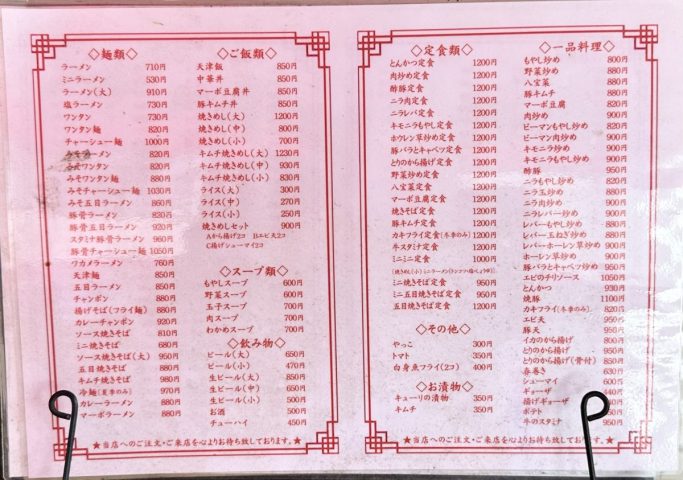 ◇麺類◇
ラーメン 710円
ミニラーメン 530円
ラーメン(大) 910円
塩ラーメン 730円
ワンタン 730円
ワンタン麺 820円
チャーシュー麺 1000円
820円
みそワンタン 820円
みそワンタン麺 880円
みそチャーシュー麺 1030円
みそ五目ラーメン 860円
豚骨ラーメン 820円
豚骨五目ラーメン 920円
スタミナ豚骨ラーメン 960円
豚骨チャーシュー麺 1050円
ワカメラーメン 760円
天津麺 850円
五目ラーメン 850円
チャンポン 880円
揚げそば(フライ麺) 880円
カレーチャンポン 920円
ソース焼きそば 810円
ミニ焼きそば 680円
ソース焼きそば(大) 950円
五目焼きそば 880円
キムチ焼きそば 980円
冷麺(夏季のみ) 970円
カレーラーメン 880円
マーボラーメン 880円
◇ご飯類◇
天津飯 850円
中華丼 850円
マーボ豆腐丼 850円
豚キムチ丼 850円
焼きめし(大) 1200円
焼きめし(中) 800円
焼きめし(小) 700円
キムチ焼きめし(大) 1230円
キムチ焼きめし(中) 930円
キムチ焼きめし(小) 830円
ライス(大) 300円
ライス(中) 270円
ライス(小) 250円
焼きめしセット 900円
Aから揚げ2コ Bエビ天2コ
C揚げシューマイ2コ
◇スープ類◇
もやしスープ 600円
野菜スープ 600円
玉子スープ 700円
肉スープ 700円
わかめスープ 700円
◇飲み物◇
ビール(大) 650円
ビール(小) 470円
生ビール(大) 850円
生ビール(中) 650円
生ビール(小) 500円
お酒 500円
チューハイ 450円
★当店へのご注文・ご来店を心よりお待ち致しております。★
◇定食類◇
とんかつ定食 1200円
肉炒め定食 1200円
酢豚定食 1200円
ニラ肉定食 1200円
ニラレバ定食 1200円
キモニラもやし定食 1200円
ホウレン草炒め定食 1200円
豚バラとキャベツ定食 1200円
とりのから揚げ定食 1200円
野菜炒め定食 1200円
八宝菜定食 1200円
マーボ豆腐定食 1200円
焼きそば定食 1200円
豚キムチ定食 1200円
カキフライ定食(冬季のみ) 1200円
牛スタミナ定食 1200円
ミニミニ定食 1000円
ミニ焼きそば定食 950円
ミニ五目焼きそば定食 950円
五目焼きそば定食 1200円
◇その他◇
やっこ 300円
トマト 350円
白身魚フライ(2コ) 400円
◇お漬物◇
キューリの漬物 350円
キムチ 350円
◇一品料理◇
もやし炒め 800円
野菜炒め 880円
八宝菜 880円
豚キムチ 880円
マーボ豆腐 820円
肉炒め 900円
ピーマンもやし炒め 880円
ピーマン肉炒め 900円
キモニラ炒め 950円
キモニラもやし炒め 900円
酢豚 950円
ニラもやし炒め 810円
ニラ玉炒め 880円
ニラ肉炒め 900円
ニラレバー炒め 950円
レバーもやし炒め 880円
レバー玉ねぎ炒め 880円
レバーホーレン草炒め 950円
ホーレン草炒め 900円
豚バラとキャベツ炒め 950円
エビのチリソース 1050円
とんかつ 930円
焼豚 1100円
カキフライ(冬季のみ) 820円
エビ天 950円
豚天 950円
イカのから揚げ 950円
とりのから揚げ 850円
とりのから揚げ(骨付) 850円
春巻き
シューマイ
ギョーザ
揚げギョーザ
ポテト
牛のスタミナ 950円
★当店へのご注文・ご来店を心よりお待ち致しております。★